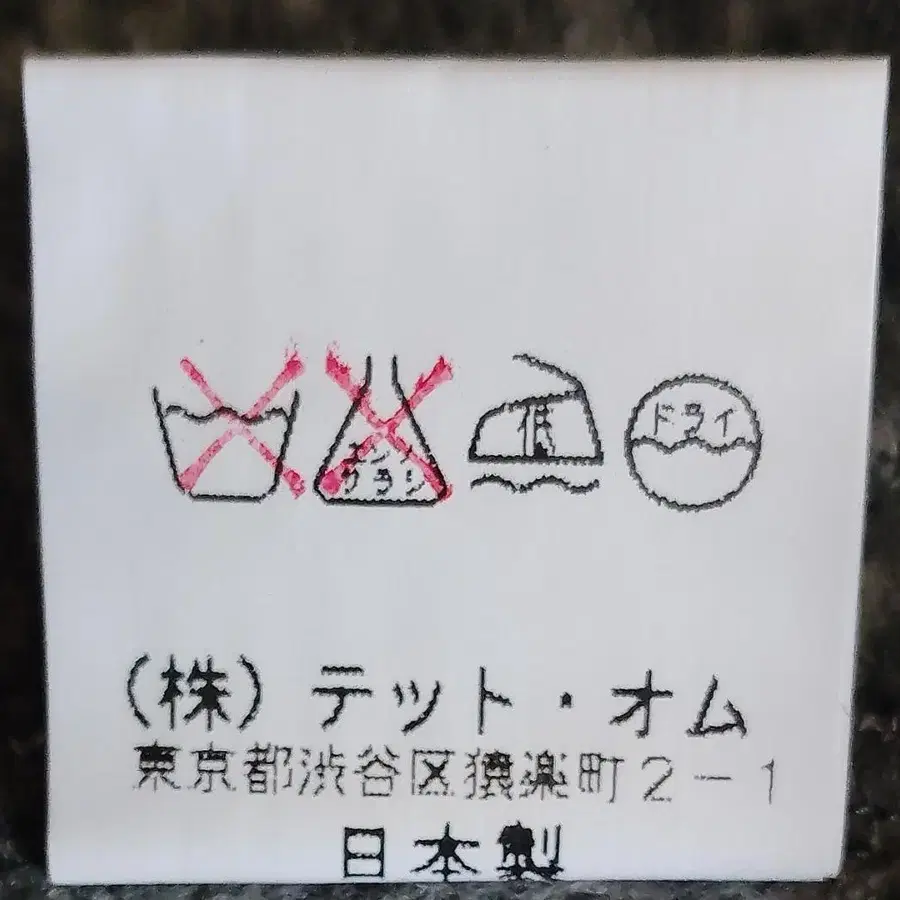 エンソ
サラシ
低
ドライ
(株) テット・オム
東京都渋谷区猿楽町2-1
日本製